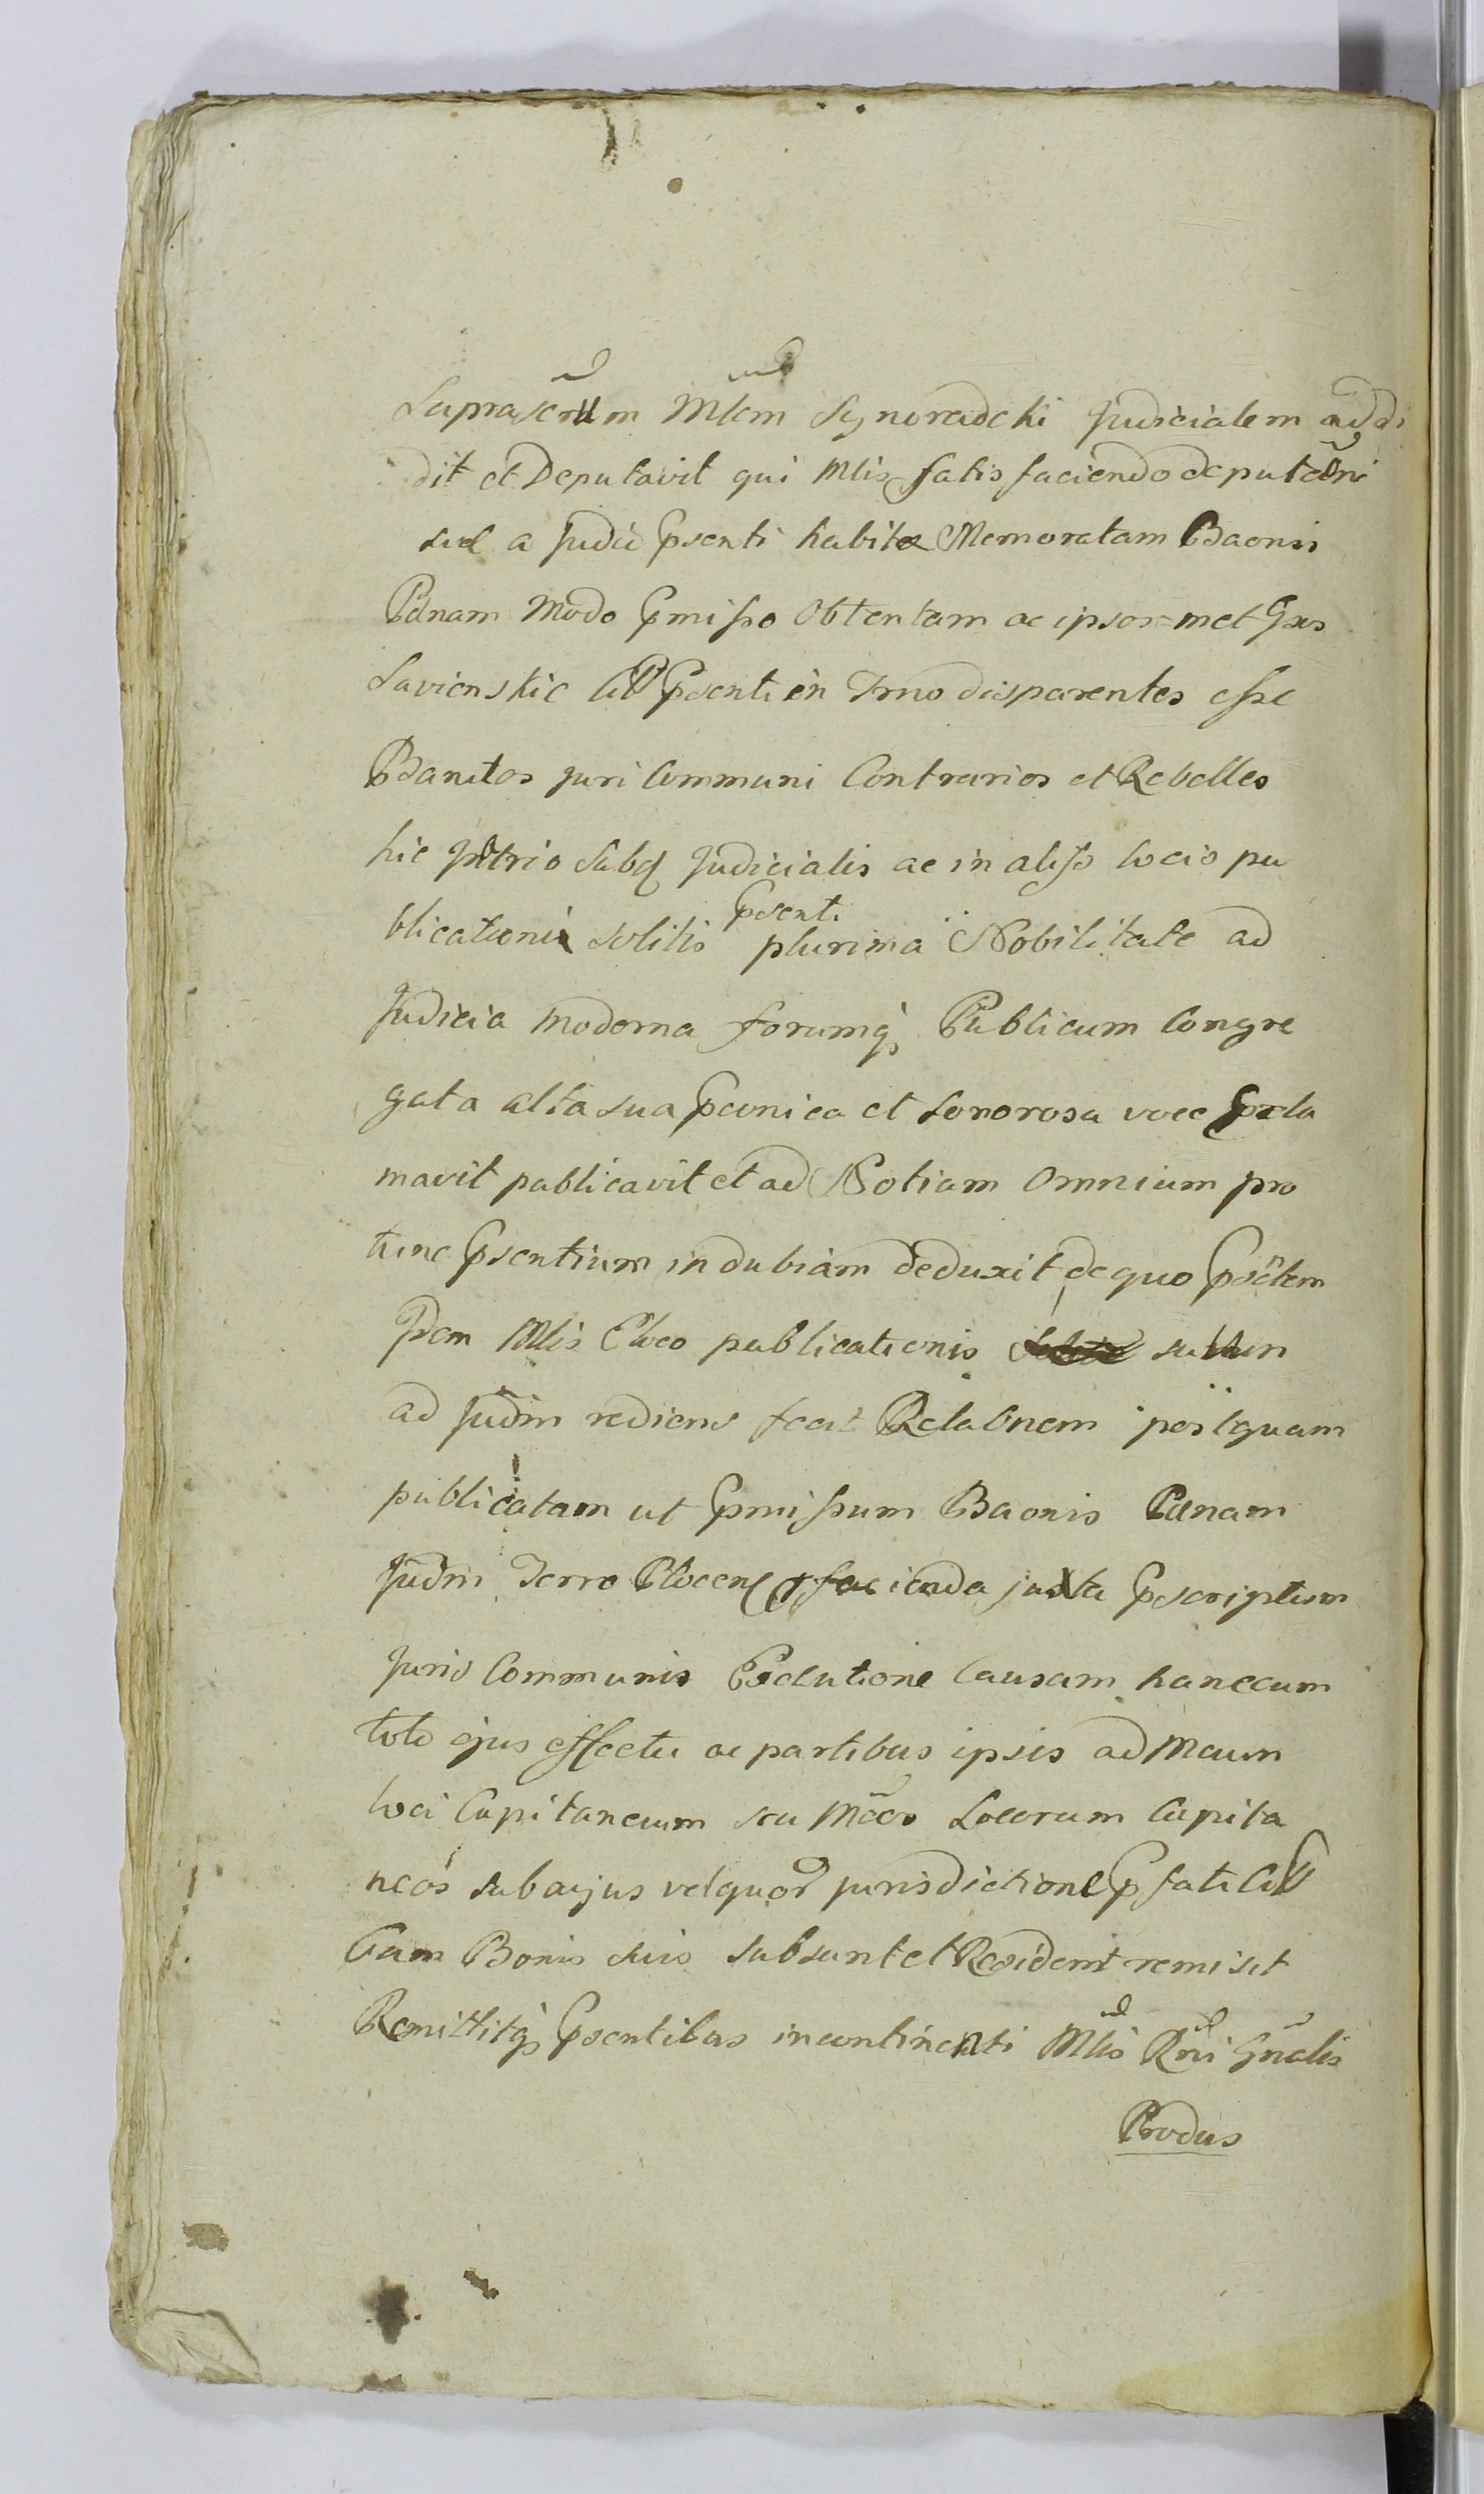 suprascrum Mlem Synoradcki Judicialem addi
dit et Deputavit qui Mlis satis faciendo deputaoni
suæ a Judic psenti habitæ Memoratam Baonis
Pænam Modo pmisso Obtentam ac ipsos-met Gsos
Savienskie psenti in Trno disparentes esse
Banitos juri Communi Contrarios et Rebelles
hic in atrio Judicialis ac in alijs locis pu
blicationi solitis psenti plurima Nobilitate ad
Judicia moderna forumq; Publicum Congre
gata alta sua pconica et sonorosa voce procla
mavit publicavit et ad Notiam Omnium pro
tunc psentium indubiam deduxit de quo psetem
Idem Mlis e loco publicationis suum
ad Judm rediens fecit Relaōnem postquam
publicatam ut pmissum Baonis Pænam
Judm Terre Plocen pro facienda juxta pscriptum
juris Communis Exclutione Causam hanc cum
toto ejus effectu ac partibus ipsis ad Mcum
loci Capitaneum seu Mcos Locorum Capita
neos sub cujus vel quor jurisdictione pfati
Cum Bonis suis subsunt et Resident remisit
Remittitq; psentibus incontinenti Mlis Rni Gnalis
Prodūs